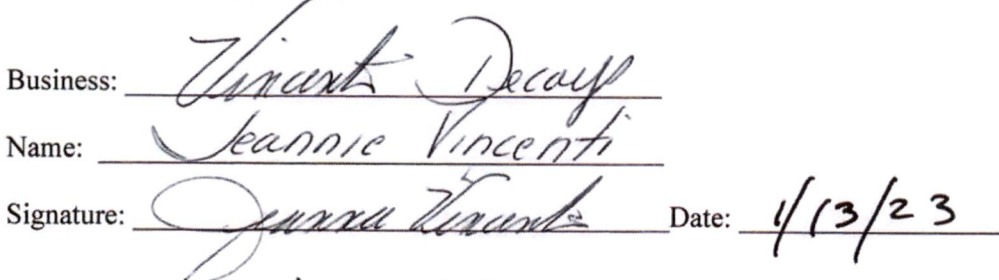 Business: Vincenti Decoys
Name: Jeannie Vincenti
Signature: Jeannie Vincenti Date: 1/13/23